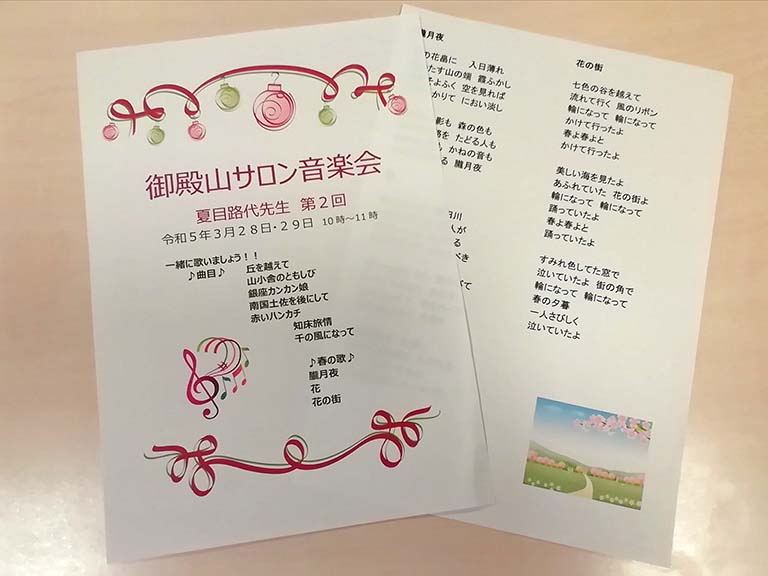 御殿山サロン音楽会
夏目路代先生 第２回
令和５年３月２８日・２９日 １０時～１１時
一緒に歌いましょう！！
♪曲目♪ 丘を越えて
山小舎のともしび
銀座カンカン娘
南国土佐を後にして
赤いハンカチ
知床旅情
千の風になって
♪春の歌♪
朧月夜
花
花の街
朧月夜
の花畠に 入日薄れ
たす山の端 霞ふかし
そよふく 空を見れば
かりて におい淡し
影も 森の色も
をたどる人も
かねの音も
る 朧月夜
川
人が
る
べき
て
花の街
七色の谷を越えて
流れて行く 風のリボン
輪になって 輪になって
かけて行ったよ
春よ春よと
かけて行ったよ
美しい海を見たよ
あふれていた 花の街よ
輪になって 輪になって
踊っていたよ
春よ春よと
踊っていたよ
すみれ色してた窓で
泣いていたよ 街の角で
輪になって 輪になって
春の夕暮
一人さびしく
泣いていたよ